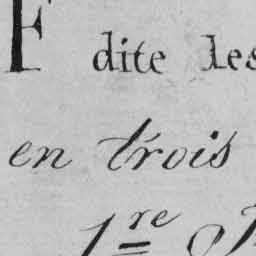 F dite les
en trois
1re